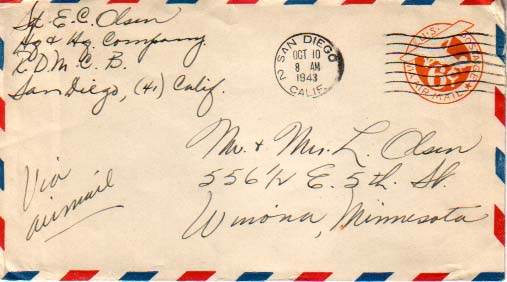 Sgt. E.C. Olsen
Hq & Hq. Company.
R.D.M.C.B.
San Diego, (41) Calif.
SAN DIEGO
2
OCT 10
8 AM
1943
CALIF.
6¢
AIR MAIL
Via
airmail
Mr. & Mrs. L. Olsen
556½ E. 5th. St.
Winona, Minnesota